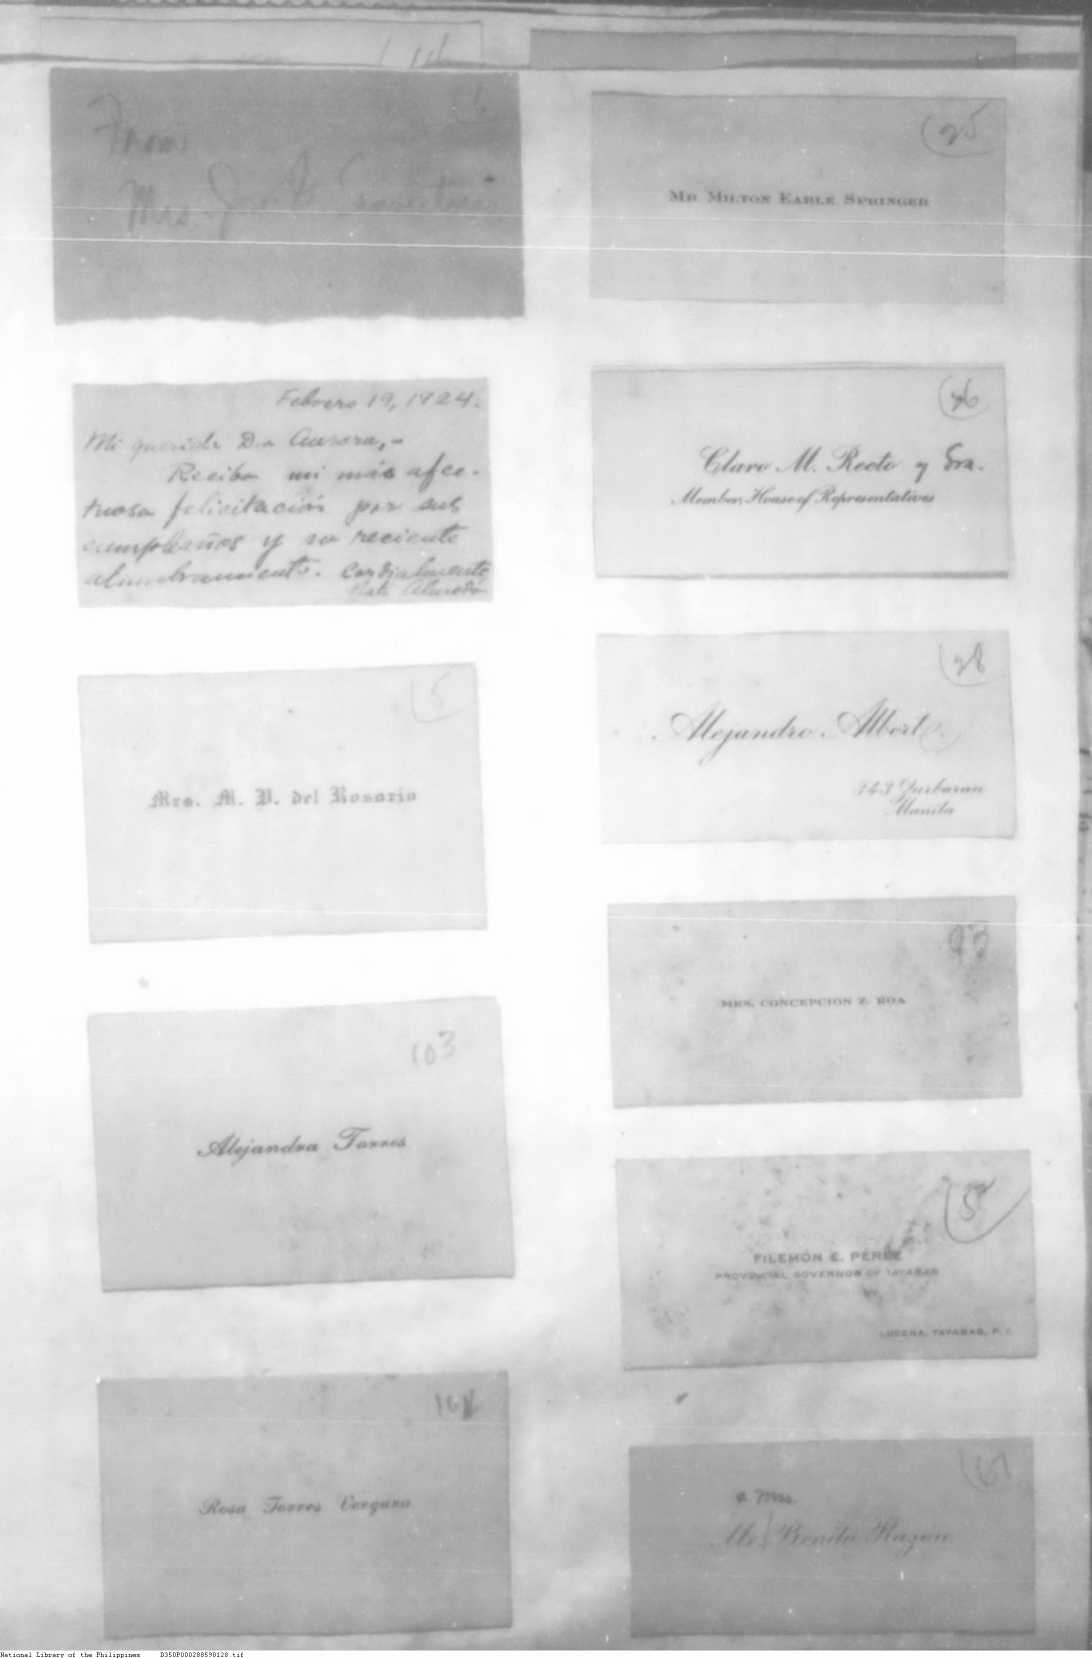 From
Mrs.
Febrero 19, 1924.
Mi querida Da Aurora,-
Reciba mi más afec-
tuosa felicitación por sus
cumpleaños y su reciente
alumbramiento. Cordialmente
5
Mrs. M. V. del Rosario
103
Alejandra Torres
Rosa Torres Vergara
95
MR. MILTON EARLE SPRINGER
96
Claro M. Recto y Sra.
Member, House of Representatives
98
Alejandro Albert
343 Zurbaran
Manila
93
MRS. CONCEPCION Z. ROA
5
FILEMÓN E. PEREZ
PROVINCIAL GOVERNOR OF TAYABAS
LUCENA, TAYABAS, P. I.
& Mrs.
Mr. Benito Razon
National Library of the Philippines D350P000288598128.tif